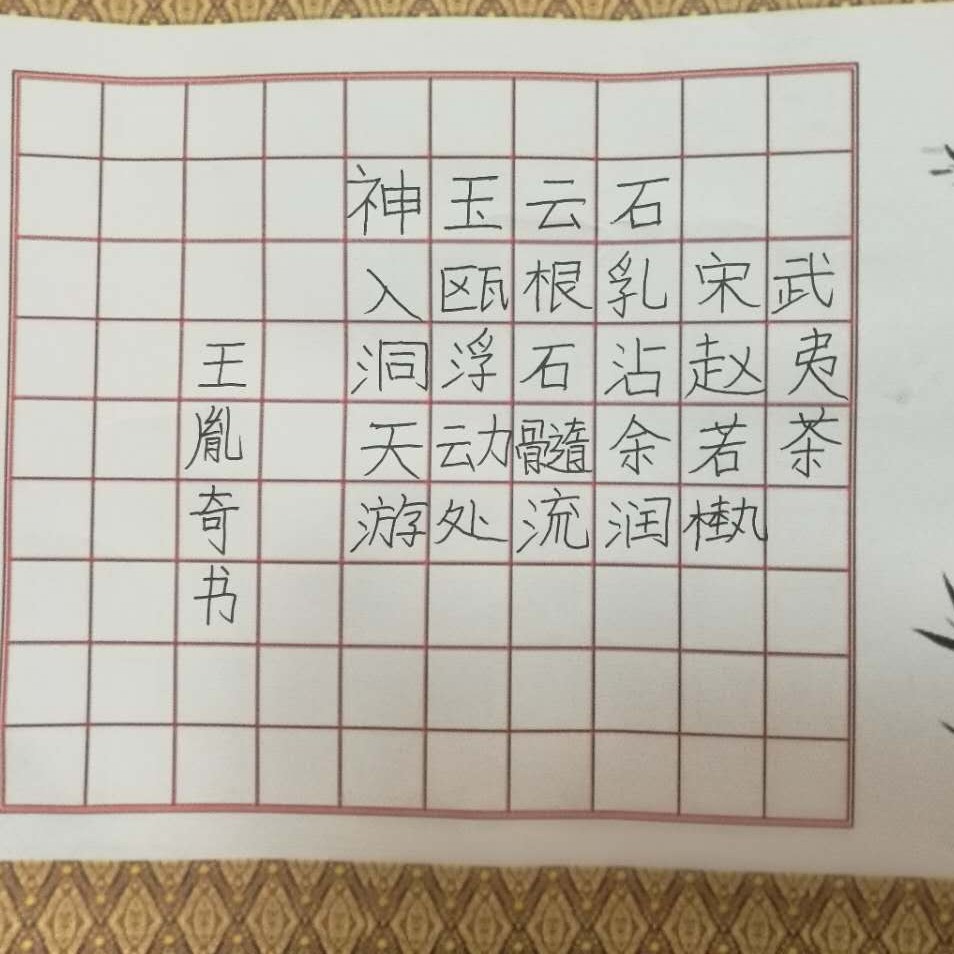 武夷茶
宋赵若槸
石乳沾余润
云根石髓流
玉瓯浮动处
神入洞天游
王胤奇书